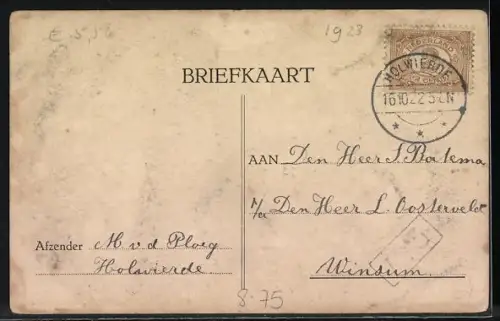 E 5,58
1923
NEDERLAND
HOLWIERDE
16.10.22.5-6N
BRIEFKAART
AAN Den Heer S. Batema
p/a Den Heer L. Oosterveld
Winsum.
Afzender M. v. d. Ploeg
Holwierde
8.75